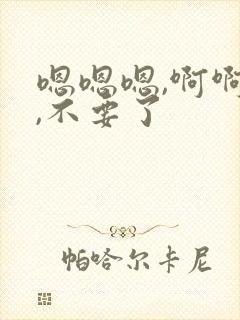 嗯嗯嗯,啊啊
,不要了
帕哈尔卡尼